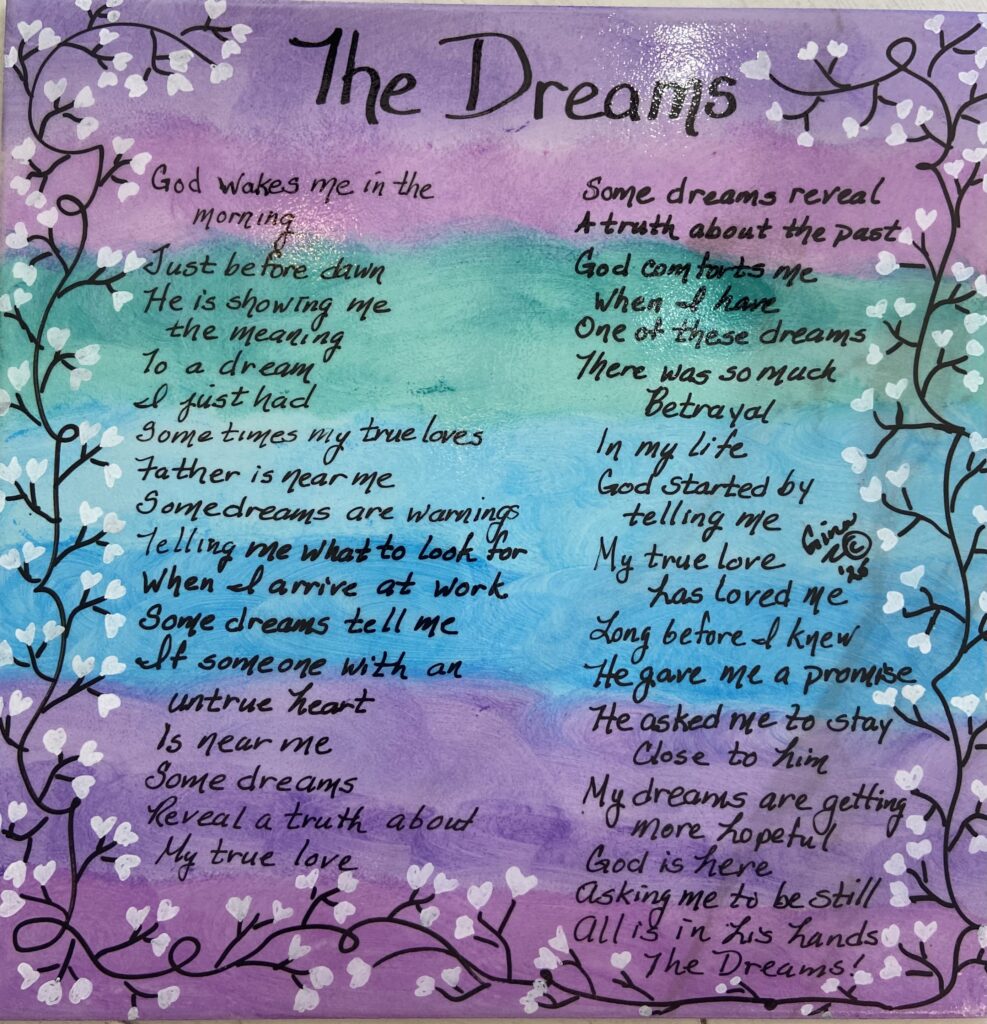 The Dreams
God wakes me in the
morning
Just before dawn
He is showing me
the meaning
To a dream
I just had
Sometimes my true loves
Father is near me
Some dreams are warnings
Telling me what to look for
When I arrive at work
Some dreams tell me
If someone with an
untrue heart
Is near me
Some dreams
Reveal a truth about
My true love
Some dreams reveal
A truth about the past
God comforts me
When I have
One of these dreams
There was so much
Betrayal
In my life
God started by
telling me
My true love
has loved me
Long before I knew
He gave me a promise
He asked me to stay
Close to him
My dreams are getting
more hopeful
God is here
Asking me to be still
All is in his hands
The Dreams!
Gina
©